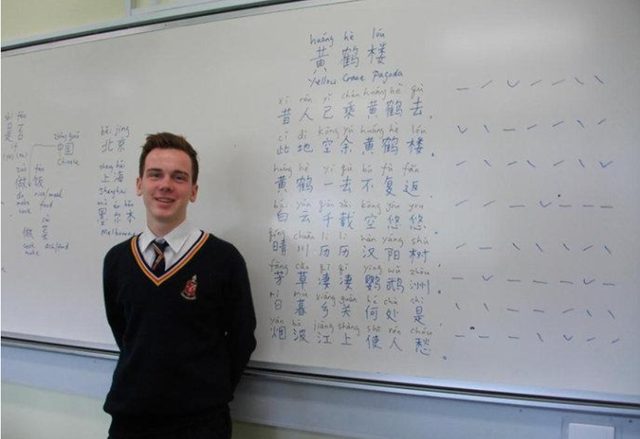 huáng hè lóu
黄鹤楼
Yellow Crane Pagoda
xī rén yǐ chéng huáng hè qù
昔人已乘黄鹤去.
cǐ dì kōng yú huáng hè lóu
此地空余黄鹤楼.
huáng hè yī qù bù fù fǎn
黄鹤一去不复返
bái yún qiān zǎi kōng yōu yōu
白云千载空悠悠.
qíng chuān lì lì hàn yáng shù
晴川历历汉阳树
fāng cǎo qī qī yīng wǔ zhōu
草凄凄鹦鹉洲.
rì mù xiāng guān hé chù shì
日暮乡关何处是
yān bō jiāng shàng shǐ rén chóu
烟波江上使人愁.
是否
zhōng guó
中国
Chinese
做饭
make food
做菜
běi jīng
北京
shàng hǎi
上海
Shanghai
mò ěr běn
墨尔本
Melbourne